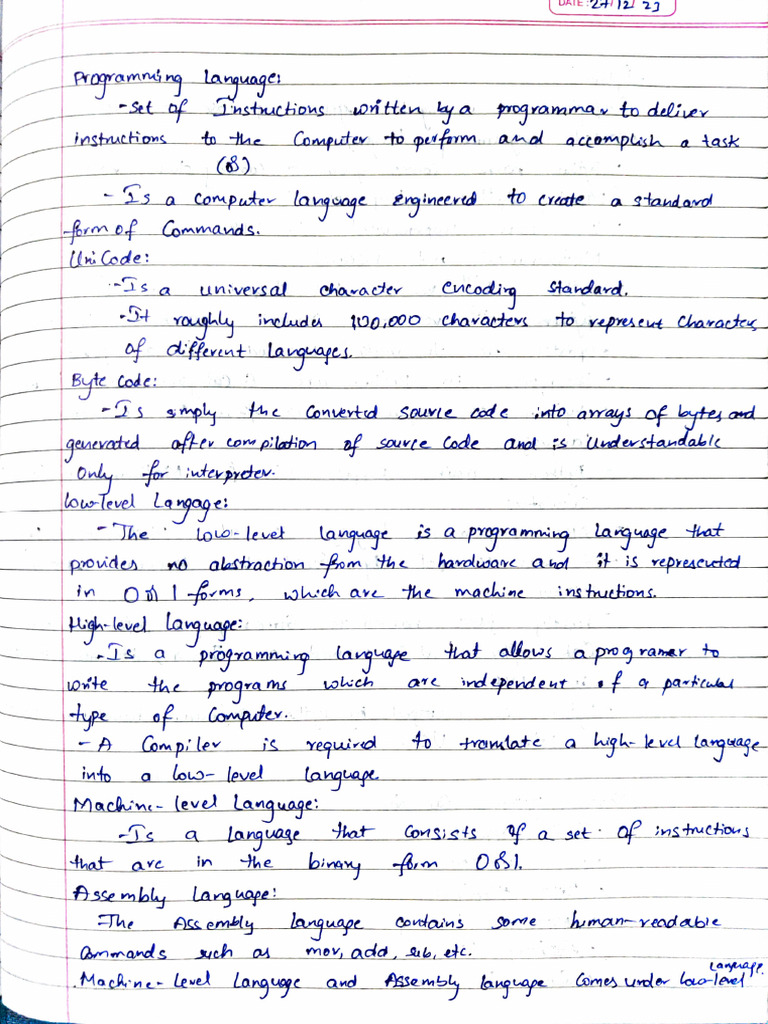 DATE: 27/12/23
Programming Language:
- Set of Instructions written by a programmar to deliver
instructions to the Computer to perform and accomplish a task
(or)
- Is a computer language engineered to create a standard
form of Commands.
UniCode:
- Is a universal character encoding standard.
- It roughly includes 100,000 characters to represent characters
of different languages.
Byte code:
- Is simply the converted source code into arrays of bytes and
generated after compilation of source code and is Understandable
Only for interpreter.
Low-level Langage:
- The low-level language is a programming language that
provides no abstraction from the hardware and it is represented
in 0 or 1 forms, which are the machine instructions.
High-level Language:
- Is a programming language that allows a programer to
write the programs which are independent of a particular
type of Computer.
- A Compiler is required to translate a high-level language
into a low-level language.
Machine-level Language:
- Is a language that consists of a set of instructions
that are in the binary form 0 or 1.
Assembly Language:
- The Assembly language contains some human-readable
commands such as mov, add, sub, etc.
Machine-Level Language and Assembly language Comes under low-level
Language.